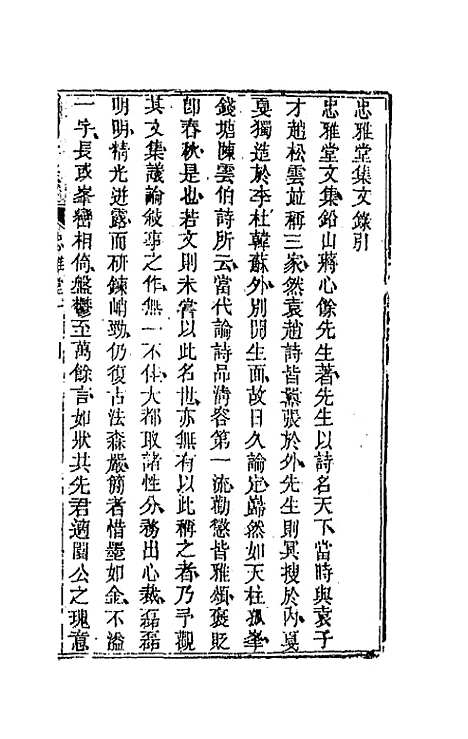 忠雅堂集文錄引
忠雅堂文集鉛山蔣心餘先生著先生以詩名天下當時與袁子
才趙松雲並稱三家然袁趙詩皆鬻張於外先生則冥搜於內戛
戛獨造於李杜韓蘇外別開生面故日久論定巋然如天柱孤峯
錢塘陳雲伯詩所云當代論詩品濟容第一流勸懲皆雅頌褒貶
卽春秋是也若文則未嘗以此名世亦無有以此稱之者乃予觀
其文集議論敍事之作無一不佳大都取諸性分務出心裁磊磊
明明精光迸露而研鍊峭勁仍復古法森嚴簡者惜墨如金不溢
一字長或峯巒相倚盤鬱至萬餘言如狀其先君適園公之瑰意